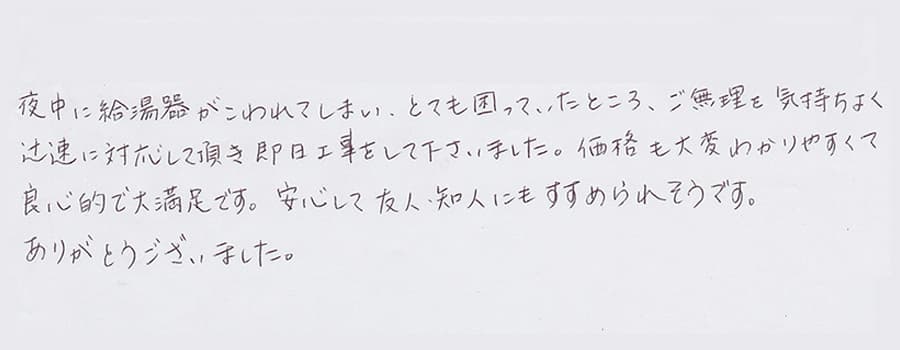 夜中に給湯器がこわれてしまい、とても困っていたところ、ご無理を気持ちよく
迅速に対応して頂き即日工事をして下さいました。価格も大変わかりやすくて
良心的で大満足です。安心して友人・知人にもすすめられそうです。
ありがとうございました。